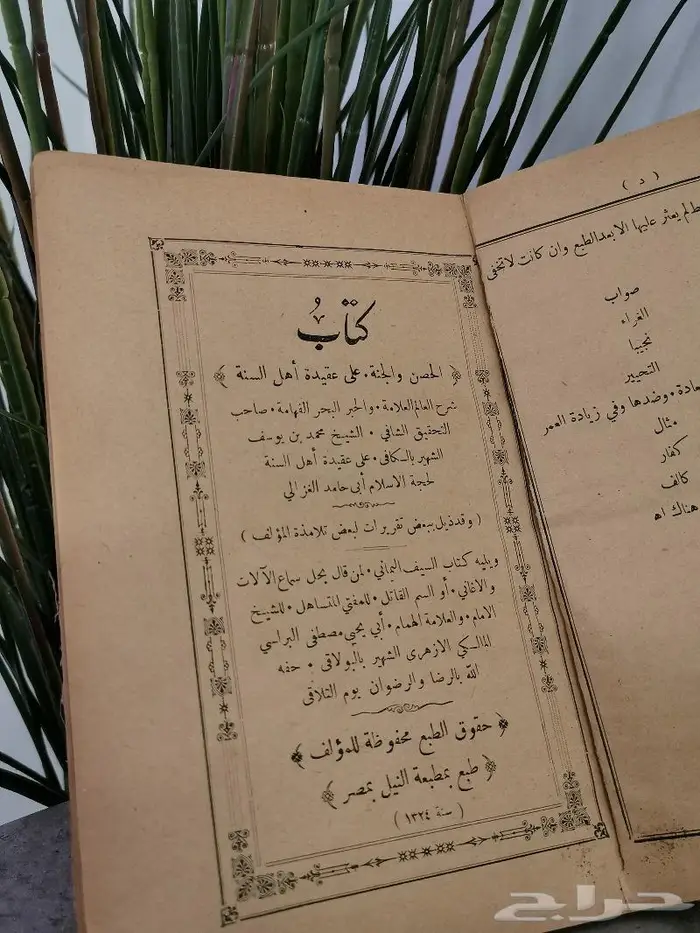 كتاب
﴿ الحصن والجنة . على عقيدة أهل السنة ﴾
شرح العالم العلامة . والحبر البحر الفهامة . صاحب
التحقيق الشافي . الشيخ محمد بن يوسف
الشهير بالكافى . على عقيدة أهل السنة
لحجة الاسلام أبى حامد الغزالي
( وقد ذيل ببعض تقريرات لبعض تلامذة المؤلف )
ويليه كتاب السيف اليماني . لمن قال بحل سماع الآلات
والاغاني . أو السم القاتل . للمفتي المتساهل . للشيخ
الامام . والعلامة الهمام . أبي يحيى مصطفى البراسي
المالكي الازهري الشهير بالبولاقي . حفه
الله بالرضا والرضوان يوم التلاقى
﴿ حقوق الطبع محفوظة للمؤلف ﴾
﴿ طبع بمطبعة النيل بمصر ﴾
( سنة ١٣٢٤ )
( د )
لم يعثر عليها الا بعد الطبع وان كانت لا تخفى
صواب
الغراء
نجيبا
التحيير
وضدها وفي زيادة العمر
مثال
كفار
كالف
هناك اه
حراج